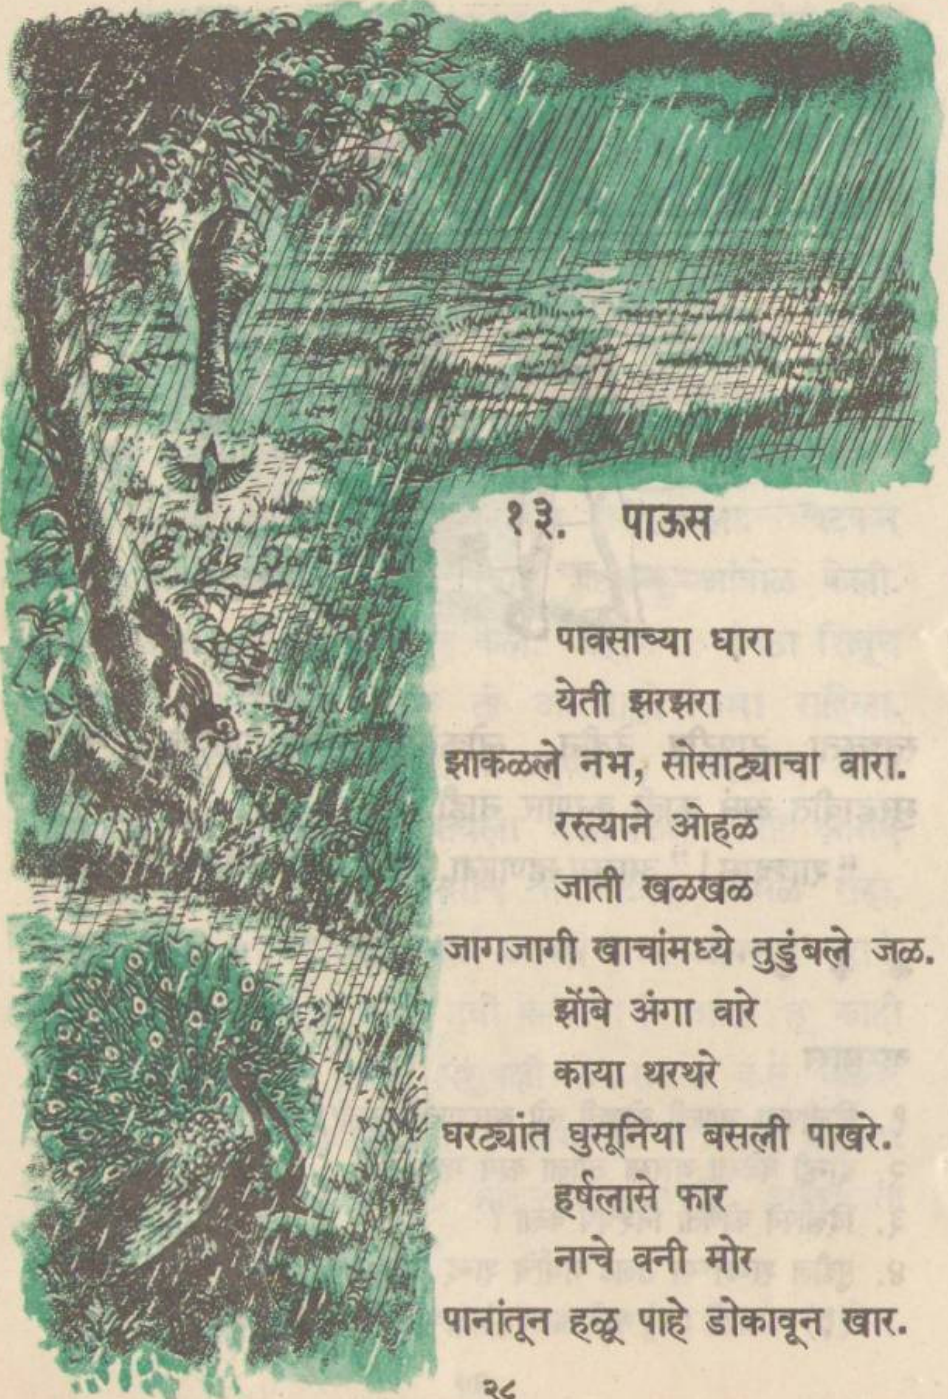 १३. पाऊस
पावसाच्या धारा
येती झरझरा
झाकळले नभ, सोसाट्याचा वारा.
रस्त्याने ओहळ
जाती खळखळ
जागजागी खाचांमध्ये तुडुंबले जळ.
झोंबे अंगा वारे
काया थरथरे
घरट्यांत घुसूनिया बसली पाखरे.
हर्षलासे फार
नाचे वनी मोर
पानांतून हळू पाहे डोकावून खार.
२८